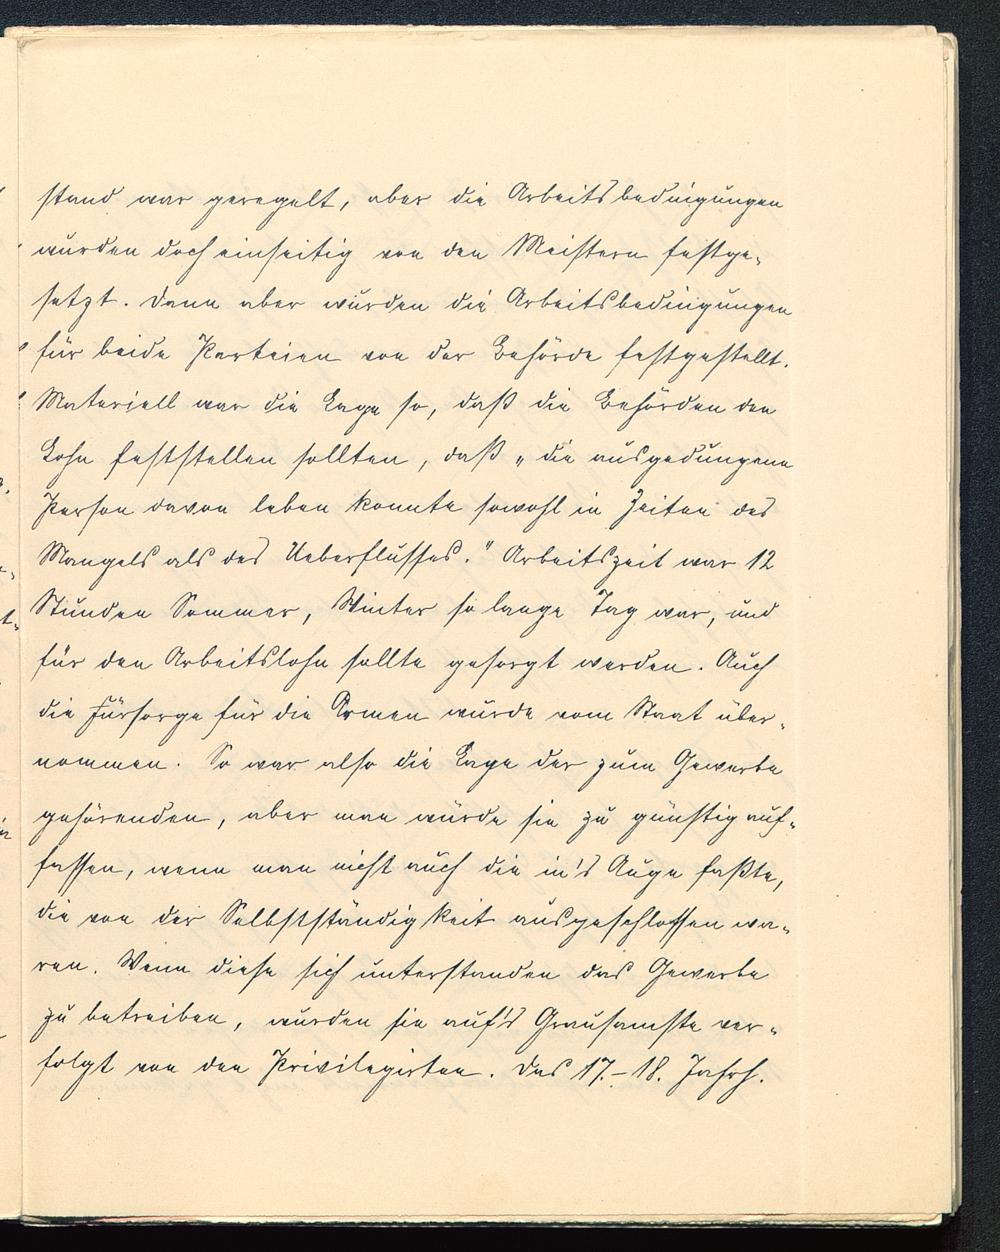 stand war geregelt, aber die Arbeitsbedingungen
wurden doch einseitig von den Meistern festge-
setzt. Dann aber wurden die Arbeitsbedingungen
für beide Parteien von der Behörde festgestellt.
Materiell war die Lage so, daß die Behörden den
Lohn feststellen sollten, daß „die ausgedungene
Person davon leben konnte sowohl in Zeiten des
Mangels als des Ueberflusses." Arbeitszeit war 12
Stunden Sommer, Winter so lange Tag war, und
für den Arbeitslohn sollte gesorgt werden. Auch
die Fürsorge für die Armen wurde vom Staat über-
nommen. So war also die Lage der zum Gewerbe
gehörenden, aber man würde sie zu günstig auf-
fassen, wenn man nicht auch die in's Auge faßte,
die von der Selbstständigkeit ausgeschlossen wa-
ren. Wenn diese sich unterstanden das Gewerbe
zu betreiben, wurden sie auf's Grausamste ver-
folgt von den Privilegirten. Das 17.-18. Jahrh.